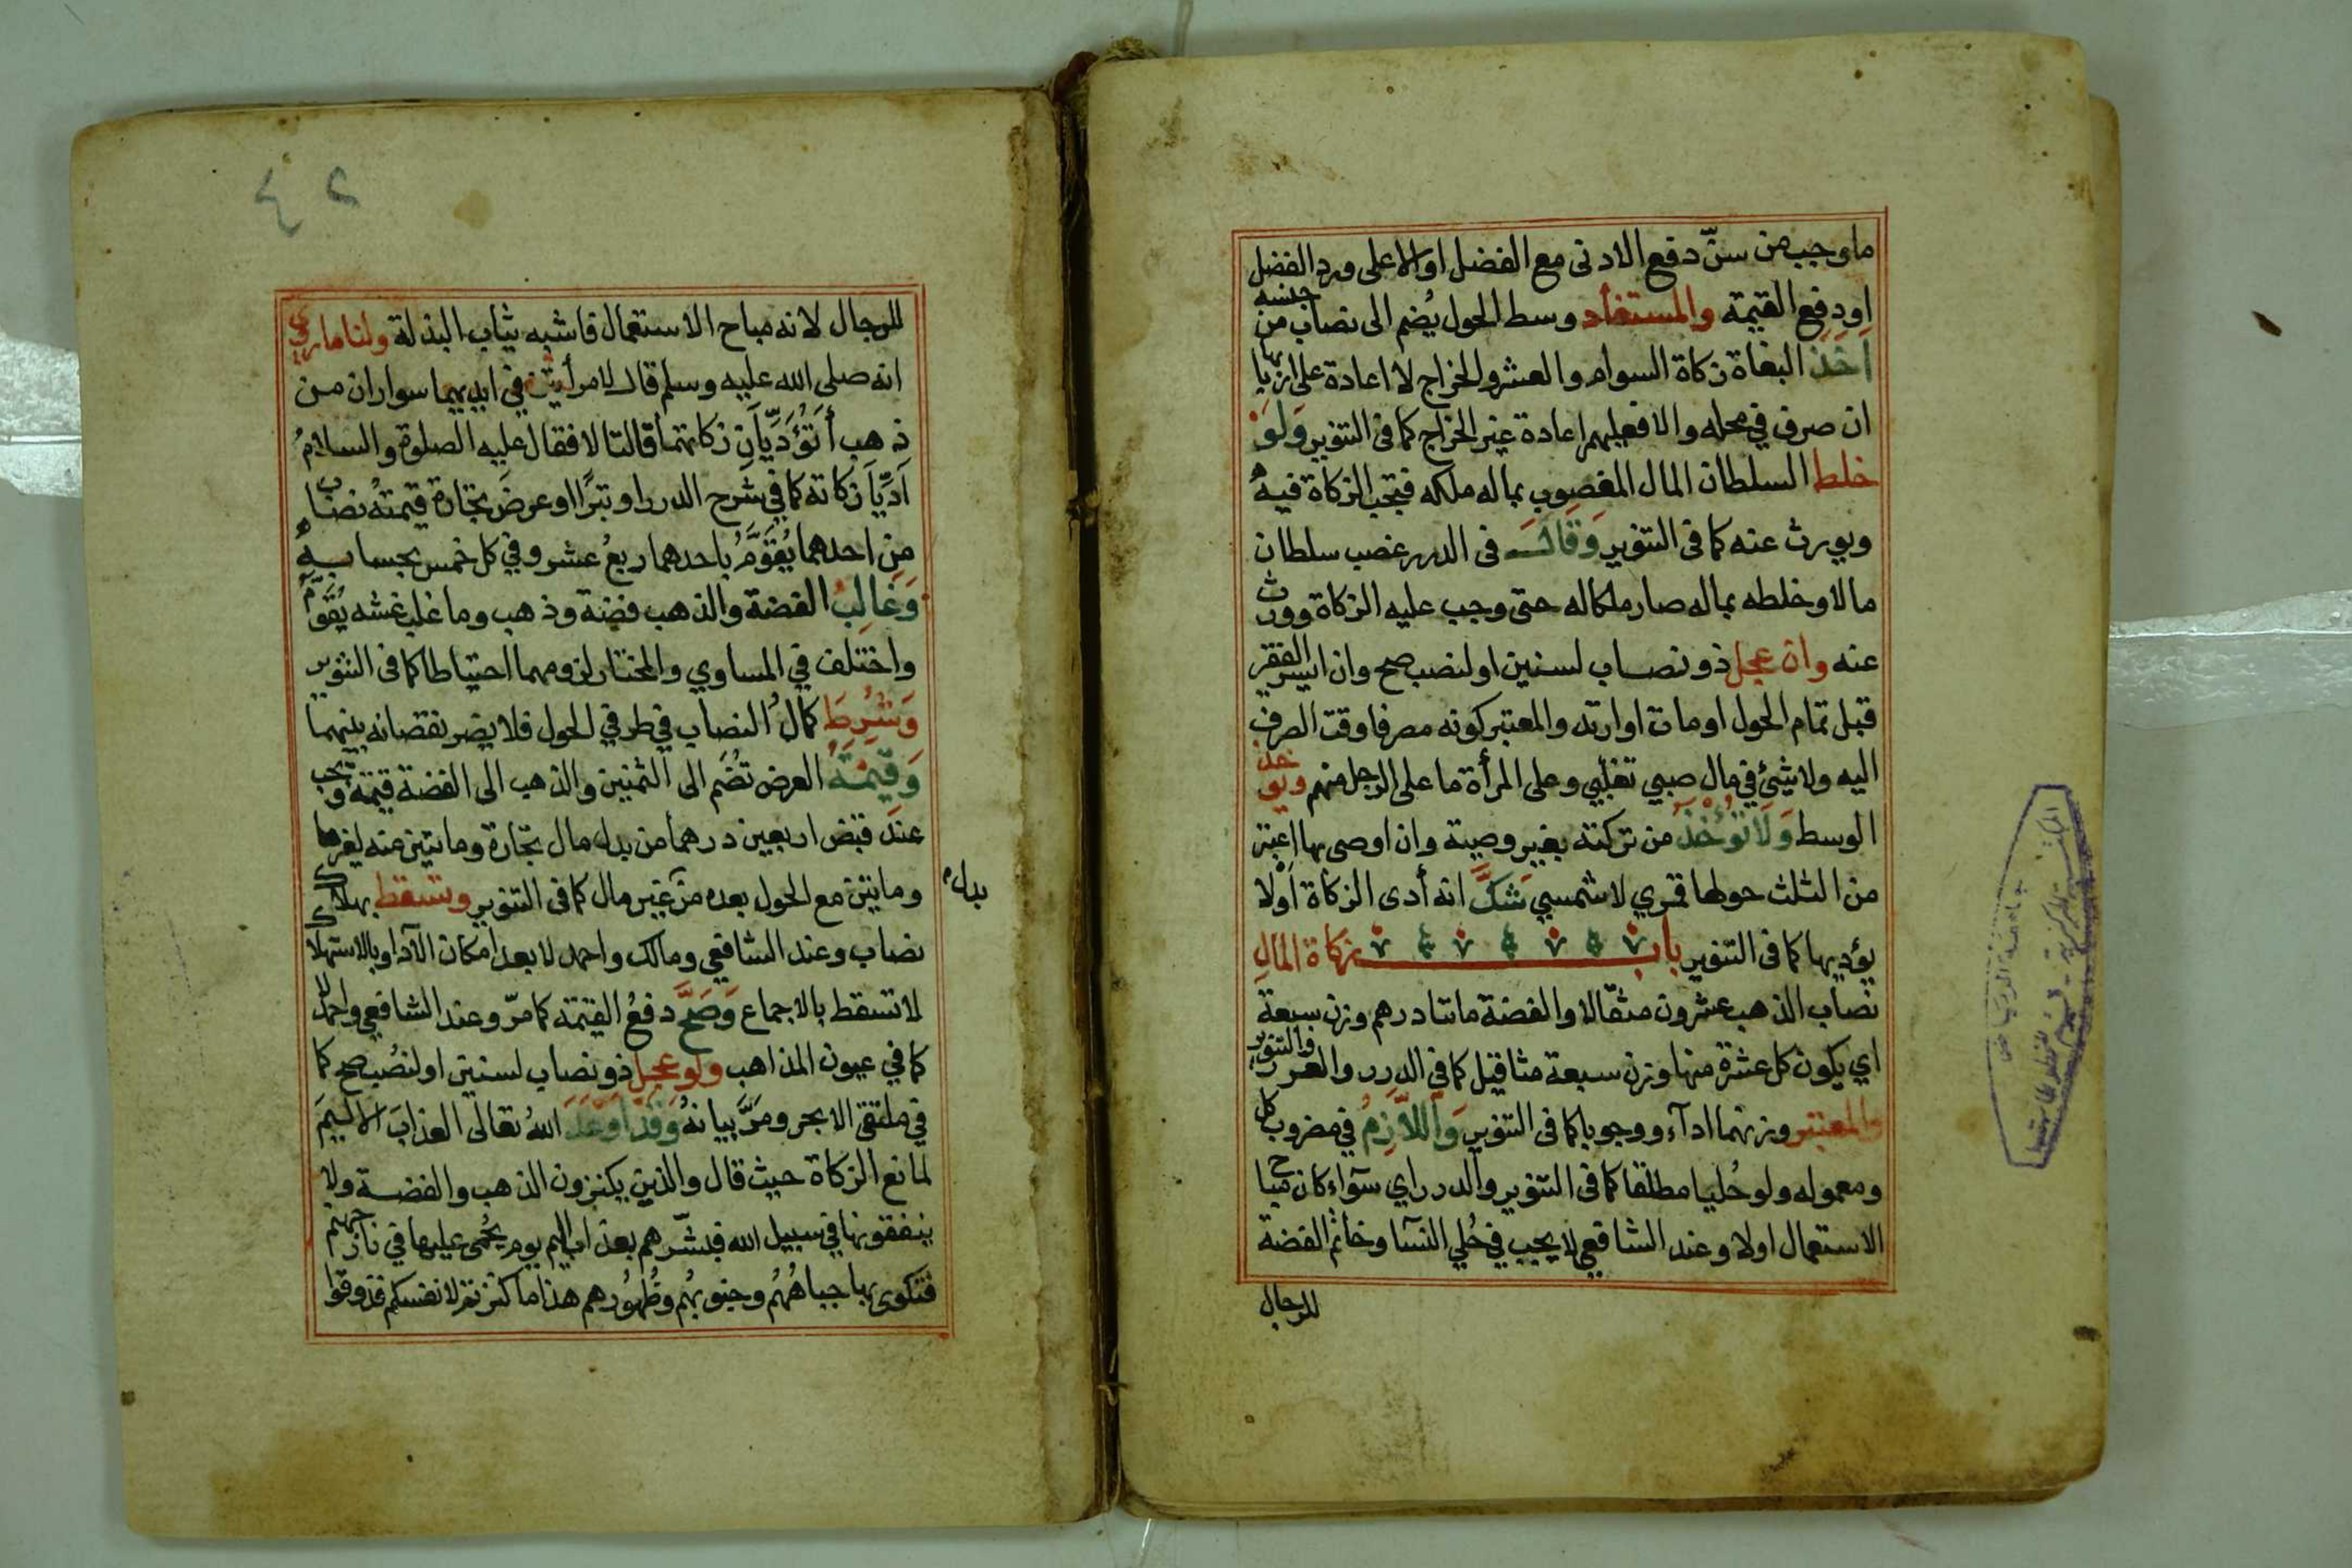 ما وجب من سنّ دفع الادنى مع الفضل او الاعلى ورد الفضل
او دفع القيمة والمستفاد وسط الحول يُضم الى نصاب من جنسه
اَخَذَ البغاة زكاة السوام والعشر والخراج لا اعادة على اربابها
ان صرف في محله والا فعليهم اعادة غير الخراج كما فى التنوير وَلَوْ
خلط السلطان المال المغصوب بماله ملكه فتجب الزكاة فيه
ويورث عنه كما فى التنوير وَقَالَ فى الدرر غصب سلطان
مالا وخلطه بماله صار ملكا له حتى وجب عليه الزكاة وورث
عنه وان عجل ذو نصاب لسنين او لنصب صح وان ايسر الفقير
قبل تمام الحول او مات او ارتد والمعتبر كونه مصرفا وقت الصرف
اليه ولا شئ في مال صبي تغلبي وعلى المرأة ما على الرجل منهم ويؤخذ
الوسط وَلَا تُؤْخَذُ من تركته بغير وصية وان اوصى بها اعتبر
من الثلث حولها قمري لا شمسي شَكَّ انه أدى الزكاة اَوْلا
يؤديها كما فى التنوير باب زكاة المال
نصاب الذهب عشرون مثقالا والفضة مائتا درهم وزن سبعة
اي يكون كل عشرة منها وزن سبعة مثاقيل كما فى الدرر والغرر والتنوير
والمعتبر وزنهما اداء ووجوبا كما فى التنوير وَاللاَّزِمُ في مضروب كل
ومعموله ولو حُليا مطلقا كما فى التنوير والدرر اي سوآء كان مباح
الاستعمال اولا وعند الشافعي لا يجب في حُلي النسآ وخاتم الفضة
للرجال
للرجال لانه مباح الاستعمال فاشبه ثياب البذلة ولنا ما روي
انه صلى الله عليه وسلم قال لامرأتين في ايديهما سواران من
ذهب أَتُؤَدِّيَانِ زكاتهما قالتا لا فقال عليه الصلوة والسلام
اَدِّيَا زكاته كما في شرح الدرر او تبرًا او عرضَ تجارة قيمتهُ نصاب
من احدهما يُقَوَّمُ باحدهما ربعُ عشر وفي كل خمس بحسابه
وَغَالِبُ الفضة والذهب فضة وذهب وما غلب غشه يُقَوَّمُ
واختلف في المساوي والمختار لزومهما احتياطا كما فى التنوير
وَشُرِطَ كمالُ النصاب في طرفي الحول فلا يضر نقصانه بينهما
وَقِيمَةُ العرض تُضَم الى الثمنين والذهب الى الفضة قيمة وتجب
عند قبض اربعين درهما من بدل مال تجارة ومائتين منه لغيرها
بدل
ومائتين مع الحول بعده من غير مال كما فى التنوير وتسقط بهلاك
نصاب وعند الشافعي ومالك واحمد لا بعد امكان الآدا وبالاستهلاك
لا تسقط بالاجماع وَصَحَّ دفعُ القيمة كما مرّ وعند الشافعي واحمد لا
كما في عيون المذاهب ولو عجل ذو نصاب لسنين او لنُصُب صح كما
في ملتقى الابحر ومَرَّ بيانهُ وَقَدْ اَوْعَدَ اللهُ تعالى العذابَ الاليمَ
لمانع الزكاة حيث قال والذين يكنزون الذهب والفضة ولا
ينفقونها في سبيل الله فبشّرهم بعذاب اليم يوم يُحْمَى عليها في نار جهنم
فتكوى بها جباهُهُم وجنوبُهُم وظُهُورهم هذا ما كنزتم لانفسكم فذوقوا